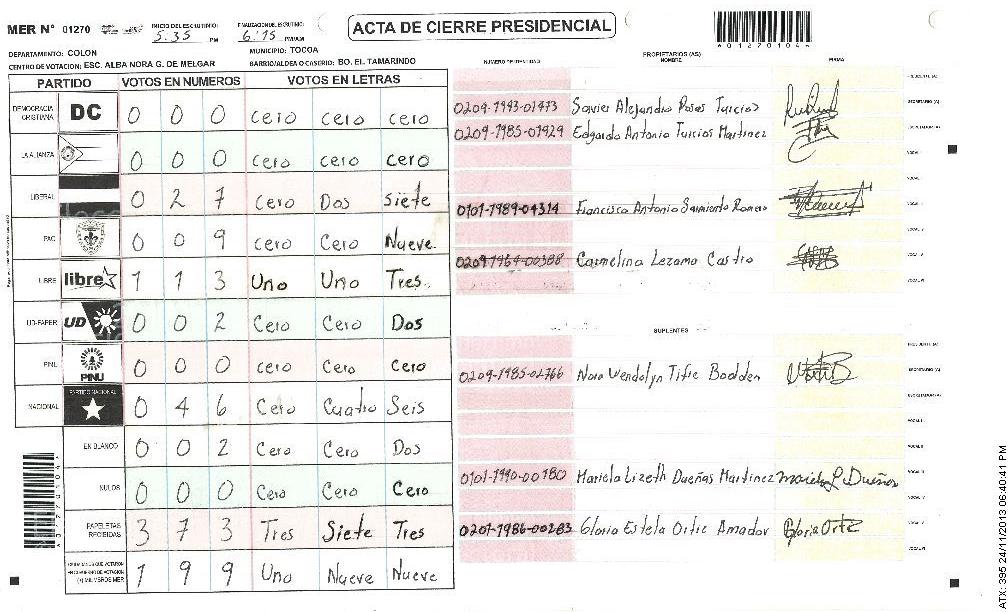 MER N° 01270
INICIO DEL ESCRUTINIO:
5:35 PM
FINALIZACION DEL ESCRUTINIO:
6:15 PM/AM
ACTA DE CIERRE PRESIDENCIAL
A01270104
DEPARTAMENTO: COLON
MUNICIPIO: TOCOA
CENTRO DE VOTACION: ESC. ALBA NORA G. DE MELGAR
BARRIO/ALDEA O CASERIO: BO. EL TAMARINDO
PARTIDO VOTOS EN NUMEROS VOTOS EN LETRAS
DEMOCRACIA CRISTIANA DC 0 0 0 cero cero cero
LA ALIANZA 0 0 0 cero cero cero
LIBERAL 0 2 7 cero Dos siete
PAC 0 0 9 cero Cero Nueve
LIBRE libre 1 1 3 Uno Uno Tres
UD-FAPER UD 0 0 2 Cero Cero Dos
PINU PINU 0 0 0 cero Cero Cero
NACIONAL PARTIDO NACIONAL 0 4 6 Cero Cuatro Seis
EN BLANCO 0 0 2 Cero Cero Dos
NULOS 0 0 0 Cero Cero Cero
PAPELETAS RECIBIDAS 3 7 3 Tres Siete Tres
1 9 9 Uno Nueve Nueve
NUMERO DE IDENTIDAD
PROPIETARIOS (AS)
NOMBRE
FIRMA
PRESIDENTE (A)
0209-1993-01473 Savier Alejandro Posas Turcios SECRETARIO (A)
0209-1985-01929 Edgardo Antonio Turcios Martinez ESCRUTADOR (A)
VOCAL I
VOCAL II
0101-1989-04314 Francisco Antonio Sarmiento Romero VOCAL III
VOCAL IV
0209-1964-00388 Carmelina Lezama Castro VOCAL V
VOCAL VI
SUPLENTES
PRESIDENTE (A)
0209-1985-02766 Nora Wendolyn Tifre Bodden SECRETARIO (A)
ESCRUTADOR (A)
VOCAL I
VOCAL II
0101-1990-00780 Mariela Lizeth Dueñas Martinez VOCAL III
VOCAL IV
0201-1986-00283 Gloria Estela Ortiz Amador Gloria Ortiz VOCAL V
VOCAL VI
ATX: 395 24/11/2013 06:40:41 PM